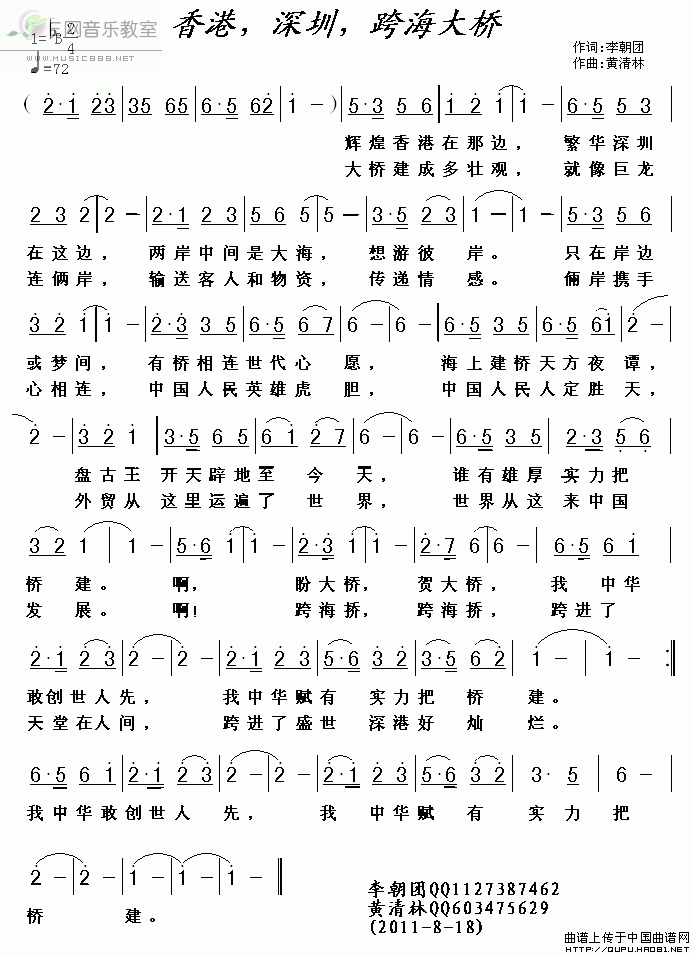 香港，深圳，跨海大桥
音乐教室
WWW.MUSIC888.NET
1=♭B 2/4
♩=72
作词:李朝团
作曲:黄清林
(2·1 23|35 65|6·5 62|1 -)|5·3 5 6|1 2 1|1 -|6·5 5 3|
辉煌香港在那边，繁华深圳
大桥建成多壮观，就像巨龙
2 3 2|2 -|2·1 2 3|5 6 5|5 -|3·5 2 3|1 -|1 -|5·3 5 6|
在这边，两岸中间是大海，想游彼岸。只在岸边
连俩岸，输送客人和物资，传递情感。俩岸携手
3 2 1|1 -|2·3 3 5|6·5 6 7|6 -|6 -|4·5 3 5|6·5 61|2 -|
或梦间，有桥相连世代心愿，海上建桥天方夜谭，
心相连，中国人民英雄虎胆，中国人民人定胜天，
2 -|3 2 1|3·5 6 5|6 1 2 7|6 -|6 -|3·5 3 5|2·3 5 6|
盘古王开天辟地至今天，谁有雄厚实力把
外贸从这里运遍了世界，世界从这来中国
3 2 1|1 -|5·6 1|1 -|2·3 1|1 -|2·7 6|6 -|6·5 3 6|
桥建。啊，盼大桥，贺大桥，我中华
发展。啊！跨海挢，跨海挢，跨进了
2·1 2 3|2 3|2 -|2 -|2·1 2 3|5·6 3 2|3·5 6 2|1 -|1 -:|
敢创世人先，我中华赋有实力把桥建。
天堂在人间，跨进了盛世深港好灿烂。
6·5 6 1|2·1 2 3|2 3|2·1 2 3|5·6 3 2|3· 5|6 -|
我中华敢创世人先，我中华赋有实力把
2 -|2 -|1 -|1 -||
桥建。
李朝团QQ1127387462
黄清林QQ603475629
(2011-8-18)
曲谱上传于中国曲谱网
http://QUPU.HAO81.NET